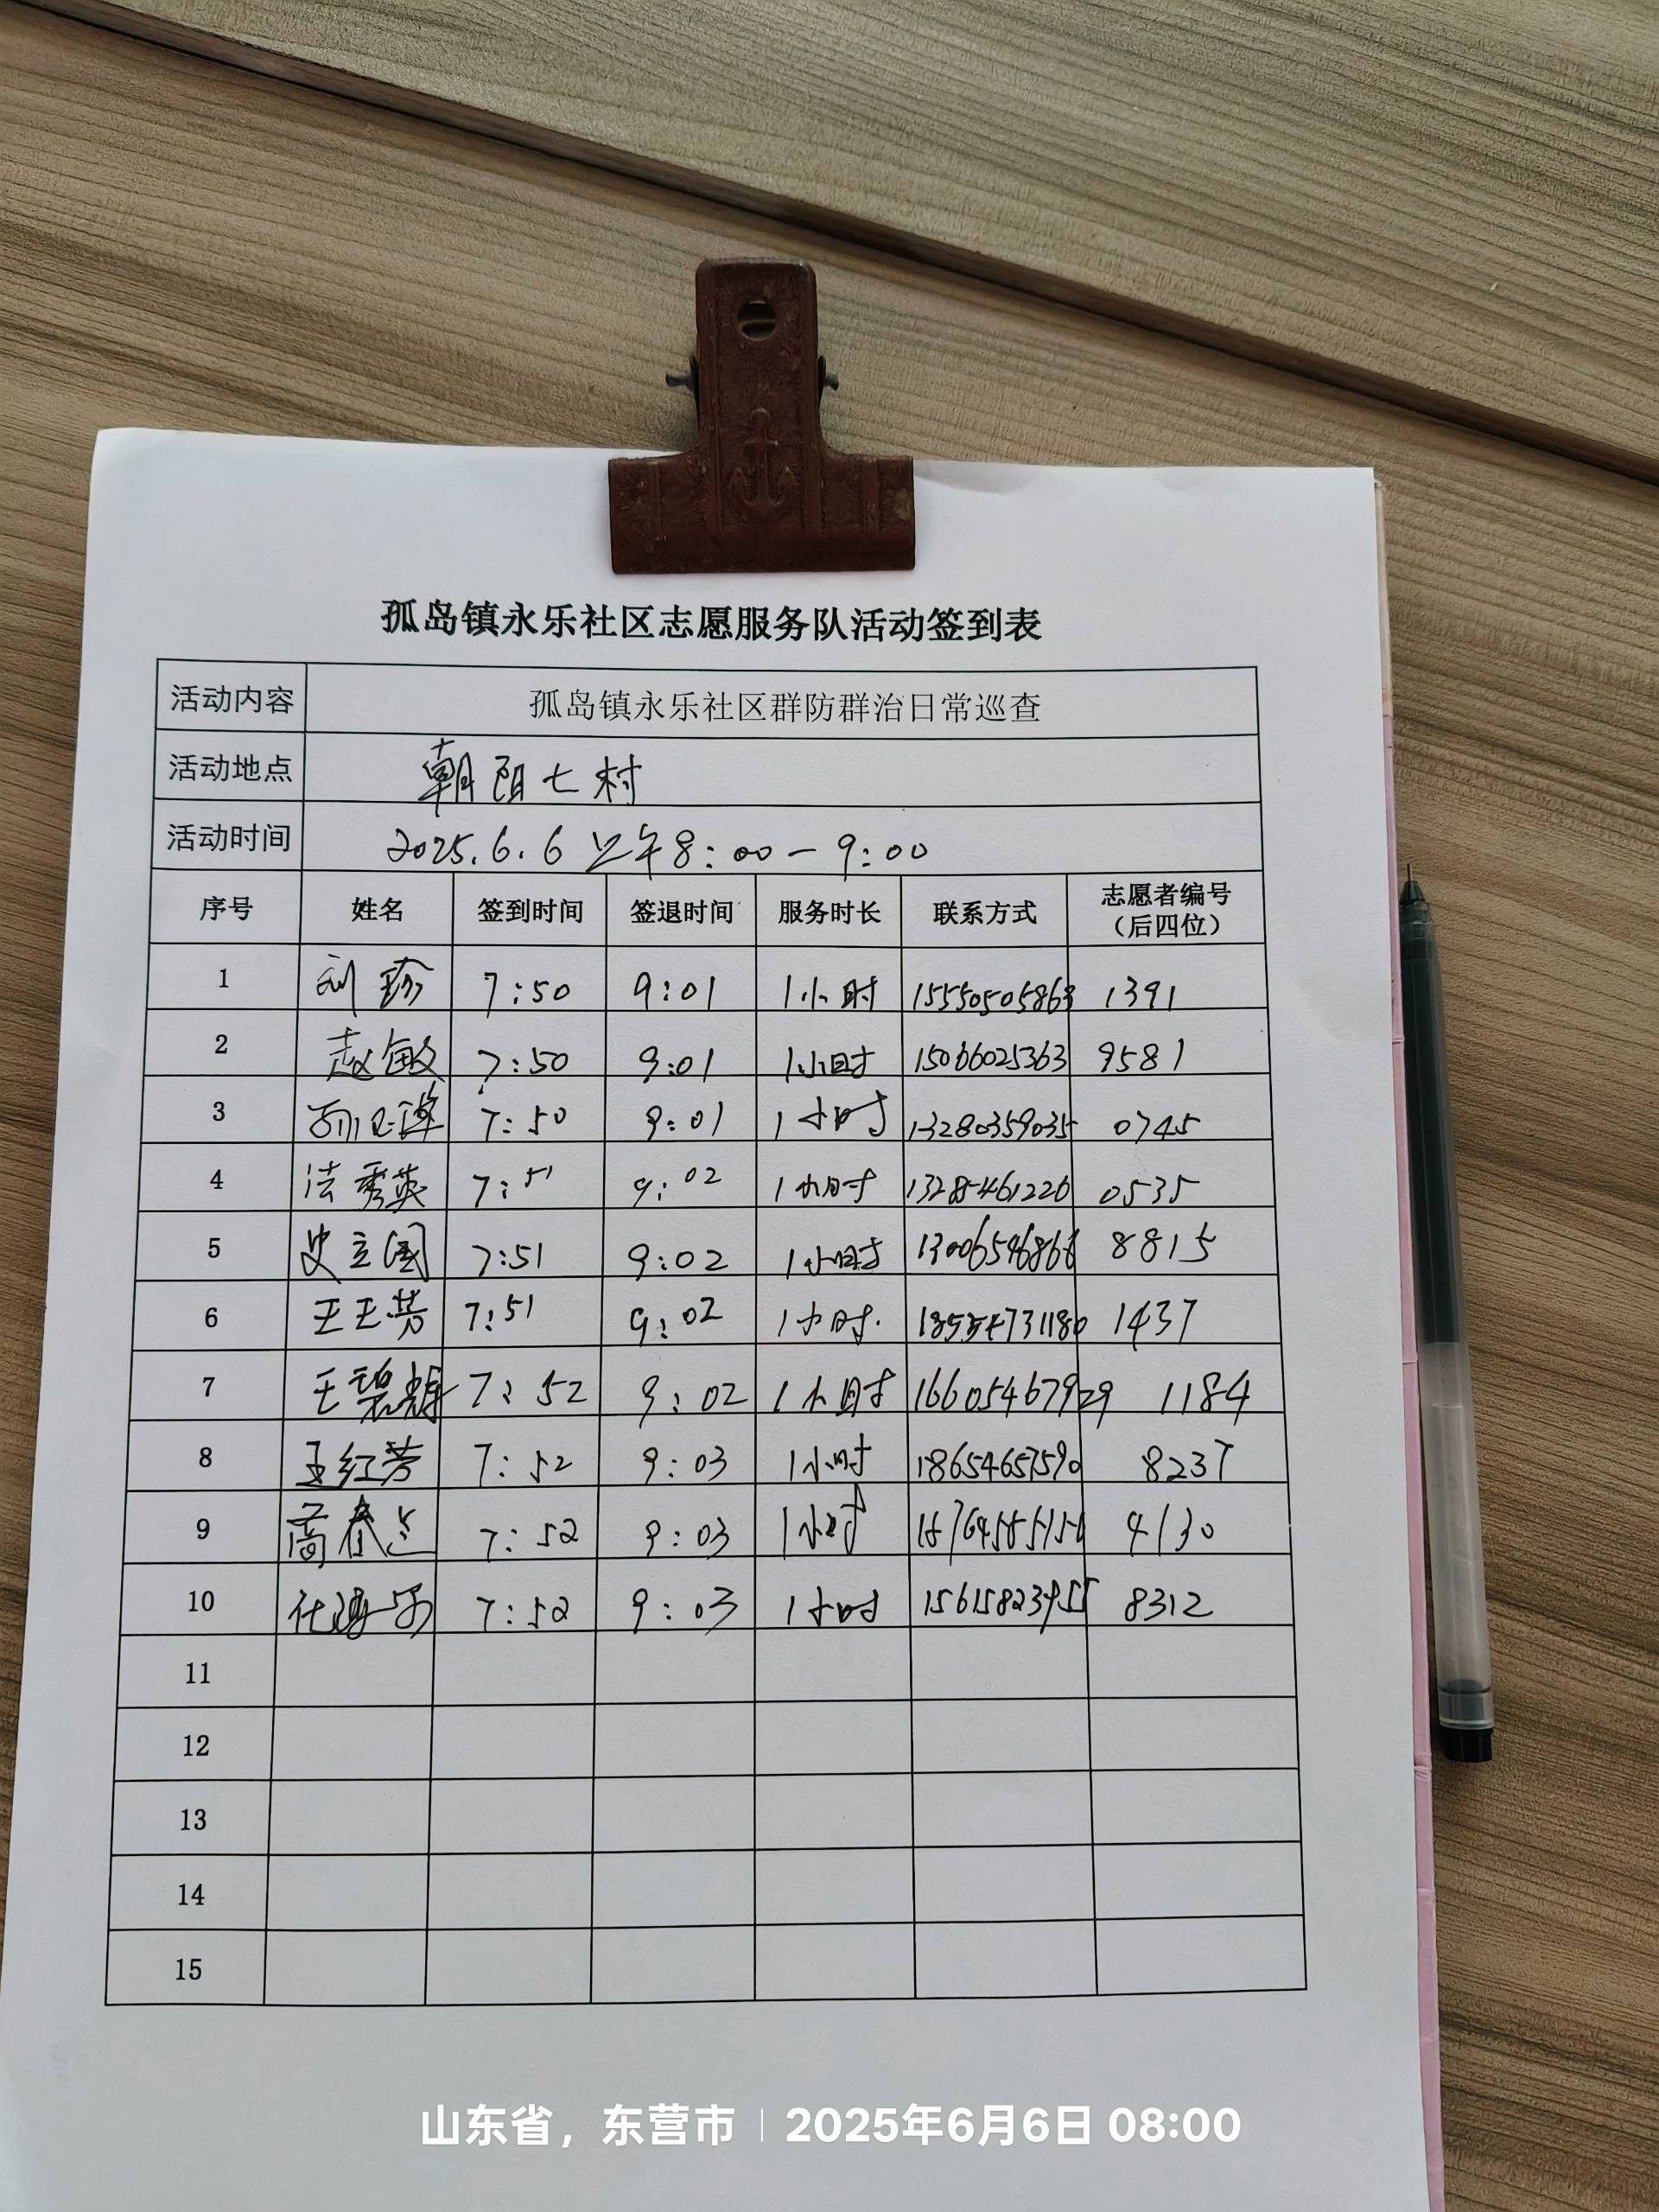 孤岛镇永乐社区志愿服务队活动签到表
活动内容 孤岛镇永乐社区群防群治日常巡查
活动地点 朝阳七村
活动时间 2025.6.6 上午8:00-9:00
序号 姓名 签到时间 签退时间 服务时长 联系方式 志愿者编号（后四位）
1 刘珍 7:50 9:01 1小时 15550505863 1391
2 赵敏 7:50 9:01 1小时 15066025363 9581
3 7:50 9:01 1小时 13280359035 0745
4 法秀英 7:51 9:02 1小时 13285461226 0535
5 史立国 7:51 9:02 1小时 13006546866 8815
6 王玉芳 7:51 9:02 1小时. 18554731180 1437
7 王碧辉 7:52 9:02 1小时 16605467929 1184
8 王红芳 7:52 9:03 1小时 18654657590 8237
9 7:52 9:03 1小时 4130
10 7:52 9:03 1小时 15615823955 8312
11
12
13
14
15
山东省，东营市 | 2025年6月6日 08:00